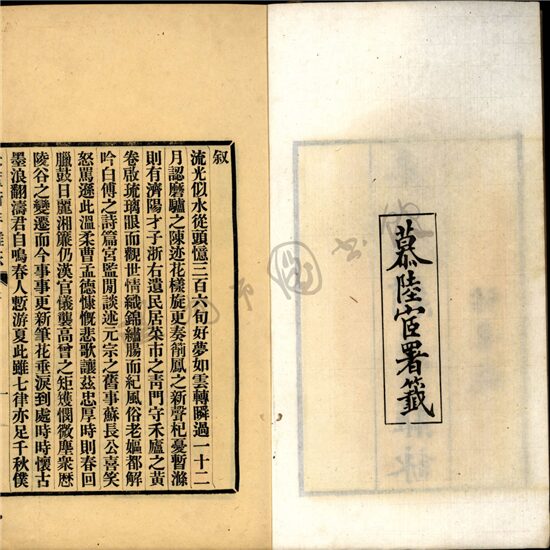 慕陸宧署籤
叙
流光似水從頭憶三百六旬好夢如雲轉瞬過一十二
月認磨驢之陳迹花樣旋更奏簫鳳之新聲杞憂暫滌
則有濟陽才子浙右遺民居菜市之靑門守禾廬之黃
卷啟琉璃眼而觀世情織錦繡腸而紀風俗老嫗都解
吟白傅之詩篇宮監閒談述元宗之舊事蘇長公喜笑
怒罵遜此溫柔曹孟德慷慨悲歌讓茲忠厚時則春回
臘鼓日麗湘簾仍漢官儀襲高曾之矩矱憫微塵衆歷
陵谷之變遷而今事事更新筆花垂淚到處時時懷古
墨浪翻濤君白鳴春人暫游夏此雖七律亦足千秋僕